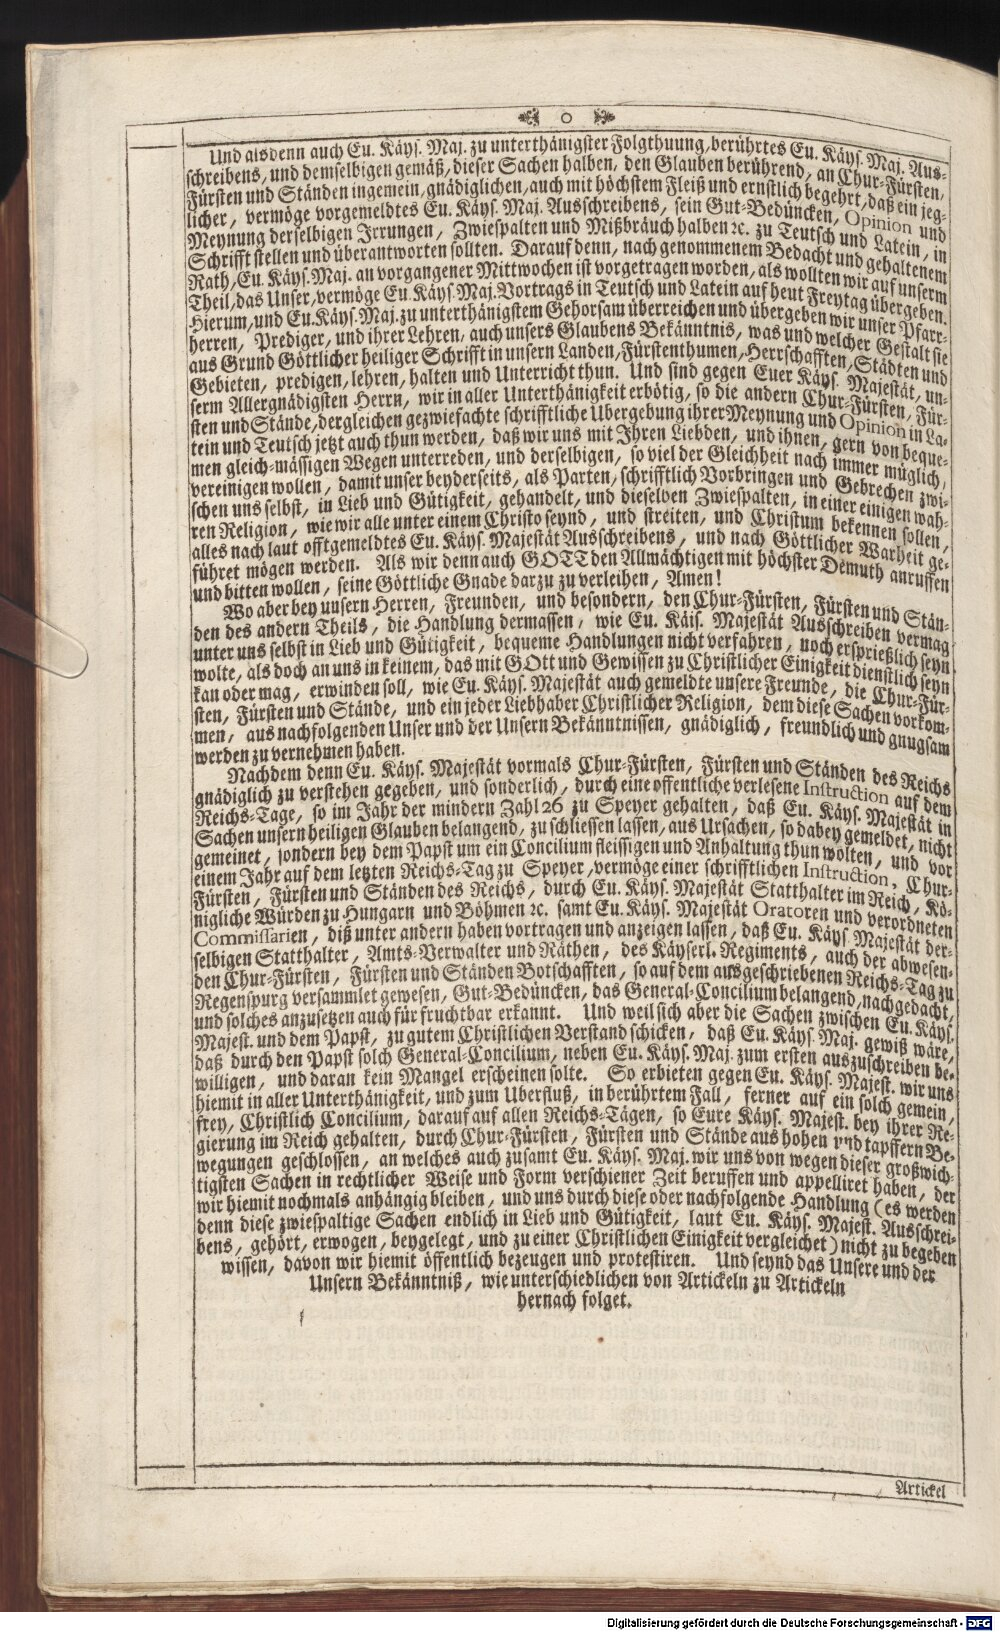 Und alsdenn auch Eu. Käys. Maj. zu unterthänigster Folgthuung, berührtes Eu. Käys. Maj. Aus-
schreibens, und demselbigen gemäß, dieser Sachen halben, den Glauben berührend, an Chur-Fürsten,
Fürsten und Ständen ingemein, gnädiglichen, auch mit höchstem Fleiß und ernstlich begehrt, daß ein jeg-
licher, vermöge vorgemeldtes Eu. Käys. Maj. Ausschreibens, sein Gut-Bedüncken, Opinion und
Meynung derselbigen Irrungen, Zwiespalten und Mißbräuch halben ꝛc. zu Teutsch und Latein, in
Schrifft stellen und überantworten sollten. Darauf denn, nach genommenem Bedacht und gehaltenem
Rath, Eu. Käys. Maj. an vorgangener Mittwochen ist vorgetragen worden, als wollten wir auf unserm
Theil, das Unser, vermöge Eu. Käys. Maj. Vortrags in Teutsch und Latein auf heut Freytag übergeben.
Hierum, und Eu. Käys. Maj. zu unterthänigstem Gehorsam überreichen und übergeben wir unser Pfarr-
herren, Prediger, und ihrer Lehren, auch unsers Glaubens Bekänntnis, was und welcher Gestalt sie
aus Grund Göttlicher heiliger Schrifft in unsern Landen, Fürstenthumen, Herrschafften, Städten und
Gebieten, predigen, lehren, halten und Unterricht thun. Und sind gegen Euer Käys. Majestät, un-
serm Allergnädigsten Herrn, wir in aller Unterthänigkeit erbötig, so die andern Chur-Fürsten, Für-
sten und Stände, dergleichen gezwiefachte schrifftliche Ubergebung ihrer Meynung und Opinion in La-
tein und Teutsch jetzt auch thun werden, daß wir uns mit Ihren Liebden, und ihnen, gern von beque-
men gleich-mässigen Wegen unterreden, und derselbigen, so viel der Gleichheit nach immer müglich,
vereinigen wollen, damit unser beyderseits, als Parten, schrifftlich Vorbringen und Gebrechen zwi-
schen uns selbst, in Lieb und Gütigkeit, gehandelt, und dieselben Zwiespalten, in einer einigen wah-
ren Religion, wie wir alle unter einem Christo seynd, und streiten, und Christum bekennen sollen,
alles nach laut offtgemeldtes Eu. Käys. Majestät Ausschreibens, und nach Göttlicher Warheit ge-
führet mögen werden. Als wir denn auch GOTT den Allmächtigen mit höchster Demuth anruffen
und bitten wollen, seine Göttliche Gnade darzu zu verleihen, Amen!
Wo aber bey unsern Herren, Freunden, und besondern, den Chur-Fürsten, Fürsten und Stän-
den des andern Theils, die Handlung dermassen, wie Eu. Käis. Majestät Ausschreiben vermag
unter uns selbst in Lieb und Gütigkeit, bequeme Handlungen nicht verfahren, noch ersprießlich seyn
wolte, als doch an uns in keinem, das mit GOtt und Gewissen zu Christlicher Einigkeit dienstlich seyn
kan oder mag, erwinden soll, wie Eu. Käys. Majestät auch gemeldte unsere Freunde, die Chur-Für-
sten, Fürsten und Stände, und ein jeder Liebhaber Christlicher Religion, dem diese Sachen vorkom-
men, aus nachfolgenden Unser und der Unsern Bekänntnissen, gnädiglich, freundlich und gnugsam
werden zu vernehmen haben.
Nachdem denn Eu. Käys. Majestät vormals Chur-Fürsten, Fürsten und Ständen des Reichs
gnädiglich zu verstehen gegeben, und sonderlich, durch eine offentliche verlesene Instruction auf dem
Reichs-Tage, so im Jahr der mindern Zahl 26 zu Speyer gehalten, daß Eu. Käys. Majestät in
Sachen unsern heiligen Glauben belangend, zu schliessen lassen, aus Ursachen, so dabey gemeldet, nicht
gemeinet, sondern bey dem Papst um ein Concilium fleissigen und Anhaltung thun wolten, und vor
einem Jahr auf dem letzten Reichs-Tag zu Speyer, vermöge einer schrifftlichen Instruction, Chur-
Fürsten, Fürsten und Ständen des Reichs, durch Eu. Käys. Majestät Statthalter im Reich, Kö-
nigliche Würden zu Hungarn und Böhmen ꝛc. samt Eu. Käys. Majestät Oratoren und verordneten
Commissarien, diß unter andern haben vortragen und anzeigen lassen, daß Eu. Käys. Majestät der-
selbigen Statthalter, Amts-Verwalter und Räthen, des Käyserl. Regiments, auch der abwesen-
den Chur-Fürsten, Fürsten und Ständen Botschafften, so auf dem ausgeschriebenen Reichs-Tag zu
Regenspurg versammlet gewesen, Gut-Bedüncken, das General-Concilium belangend, nachgedacht,
und solches anzusetzen auch für fruchtbar erkannt. Und weil sich aber die Sachen zwischen Eu. Käys.
Majest. und dem Papst, zu gutem Christlichen Verstand schicken, daß Eu. Käys. Maj. gewiß wäre,
daß durch den Papst solch General-Concilium, neben Eu. Käys. Maj. zum ersten auszuschreiben be-
willigen, und daran kein Mangel erscheinen solte. So erbieten gegen Eu. Käys. Majest. wir uns
hiemit in aller Unterthänigkeit, und zum Uberfluß, in berührtem Fall, ferner auf ein solch gemein,
frey, Christlich Concilium, darauf auf allen Reichs-Tägen, so Eure Käys. Majest. bey ihrer Re-
gierung im Reich gehalten, durch Chur-Fürsten, Fürsten und Stände aus hohen und tapffern Be-
wegungen geschlossen, an welches auch zusamt Eu. Käys. Maj. wir uns von wegen dieser großwich-
tigsten Sachen in rechtlicher Weise und Form verschiener Zeit beruffen und appelliret haben, der
wir hiemit nochmals anhängig bleiben, und uns durch diese oder nachfolgende Handlung (es werden
denn diese zwiespaltige Sachen endlich in Lieb und Gütigkeit, laut Eu. Käys. Majest. Ausschrei-
bens, gehört, erwogen, beygelegt, und zu einer Christlichen Einigkeit vergleichet) nicht zu begeben
wissen, davon wir hiemit öffentlich bezeugen und protestiren. Und seynd das Unsere und der
Unsern Bekänntniß, wie unterschiedlichen von Artickeln zu Artickeln
hernach folget.
Artickel
Digitalisierung gefördert durch die Deutsche Forschungsgemeinschaft - DFG